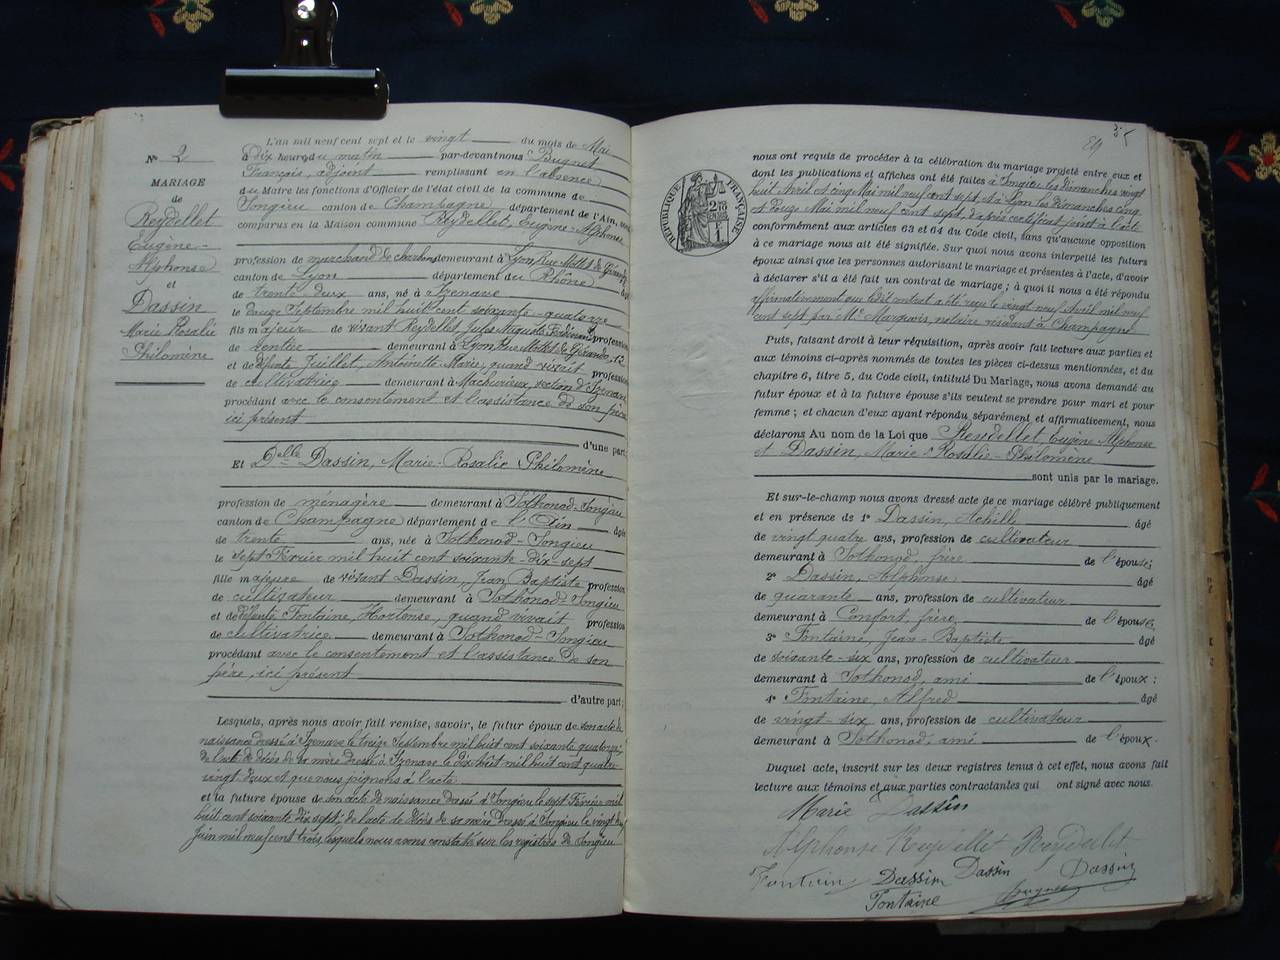 N° 2
MARIAGE
de
Reydellet
Eugène-
Alphonse
et
Dassin
Marie Rosalie
Philomène
L'an mil neuf cent sept et le vingt du mois de Mai
à Dix heures du matin par-devant nous Bugnet
François, adjoint remplissant en l'absence
du Maire les fonctions d'Officier de l'état civil de la commune de
Songieu canton de Champagne, département de l'Ain,
comparus en la Maison commune Reydellet, Eugène-Alphonse
profession de marchand de charbons demeurant à Lyon, Rue Mottet de Gérando
canton de Lyon département du Rhône âgé
de trente deux ans, né à Izenave
le douze Septembre mil huit cent soixante-quatorze
fils majeur de vivant Reydellet, Jules Auguste Ferdinand profession
de rentier demeurant à Lyon, Rue Mottet de Gérando, 12
et de défunte Juillet, Antoinette Marie, quand vivait profession
de cultivatrice demeurant à Machurieux, section d'Izenave
procédant avec le consentement et l'assistance de son père
ici présent
d'une part;
Et Delle Dassin, Marie-Rosalie Philomène
profession de ménagère demeurant à Sothonod-Songieu
canton de Champagne département de l'Ain âgée
de trente ans, née à Sothonod-Songieu
le sept Février mil huit cent soixante-dix-sept
fille majeure de vivant Dassin, Jean Baptiste profession
de cultivateur demeurant à Sothonod-Songieu
et de défunte Fontaine, Hortense, quand vivait profession
de cultivatrice demeurant à Sothonod-Songieu
procédant avec le consentement et l'assistance de son
père, ici présent
d'autre part;
Lesquels, après nous avoir fait remise, savoir, le futur époux de son acte de
naissance dressé à Izenave le treize Septembre mil huit cent soixante quatorze,
de l'acte de décès de sa mère dressé à Izenave le dix huit mil huit cent quatre
vingt-deux et que nous joignons à l'acte
et la future épouse de son acte de naissance dressé à Songieu le sept Février mil
huit cent soixante dix sept, de l'acte de décès de sa mère dressé à Songieu le vingt
Juin mil neuf cent trois, lesquels nous avons constaté sur les registres de Songieu
84
RÉPUBLIQUE FRANÇAISE
nous ont requis de procéder à la célébration du mariage projeté entre eux et
dont les publications et affiches ont été faites à Songieu les dimanches vingt
huit Avril et cinq Mai mil neuf cent sept, et à Lyon les dimanches cinq
et Douze Mai mil neuf cent sept, d'après certificat joint à l'acte
conformément aux articles 63 et 64 du Code civil, sans qu'aucune opposition
à ce mariage nous ait été signifiée. Sur quoi nous avons interpellé les futurs
époux ainsi que les personnes autorisant le mariage et présentes à l'acte, d'avoir
à déclarer s'il a été fait un contrat de mariage; à quoi il nous a été répondu
affirmativement que ledit contrat a été reçu le vingt neuf Avril mil neuf
cent sept par Me Marquois, notaire résidant à Champagne
Puis, faisant droit à leur réquisition, après avoir fait lecture aux parties et
aux témoins ci-après nommés de toutes les pièces ci-dessus mentionnées, et du
chapitre 6, titre 5, du Code civil, intitulé Du Mariage, nous avons demandé au
futur époux et à la future épouse s'ils veulent se prendre pour mari et pour
femme; et chacun d'eux ayant répondu séparément et affirmativement, nous
déclarons Au nom de la Loi que Reydellet, Eugène Alphonse
et Dassin, Marie-Rosalie-Philomène
sont unis par le mariage.
Et sur-le-champ nous avons dressé acte de ce mariage célébré publiquement
et en présence de 1° Dassin, Achille âgé
de vingt quatre ans, profession de cultivateur
demeurant à Sothonod, frère de l'épouse;
2° Dassin, Alphonse âgé
de quarante ans, profession de cultivateur
demeurant à Confort, frère de l'épouse,
3° Fontaine, Jean-Baptiste âgé
de soixante-six ans, profession de cultivateur
demeurant à Sothonod, ami de l'époux;
4° Fontaine, Alfred âgé
de vingt-six ans, profession de cultivateur
demeurant à Sothonod, ami de l'époux.
Duquel acte, inscrit sur les deux registres tenus à cet effet, nous avons fait
lecture aux témoins et aux parties contractantes qui ont signé avec nous.
Marie Dassin
Alphonse Reydellet Reydellet
Fontaine Dassin Dassin Dassin
Fontaine Bugnet